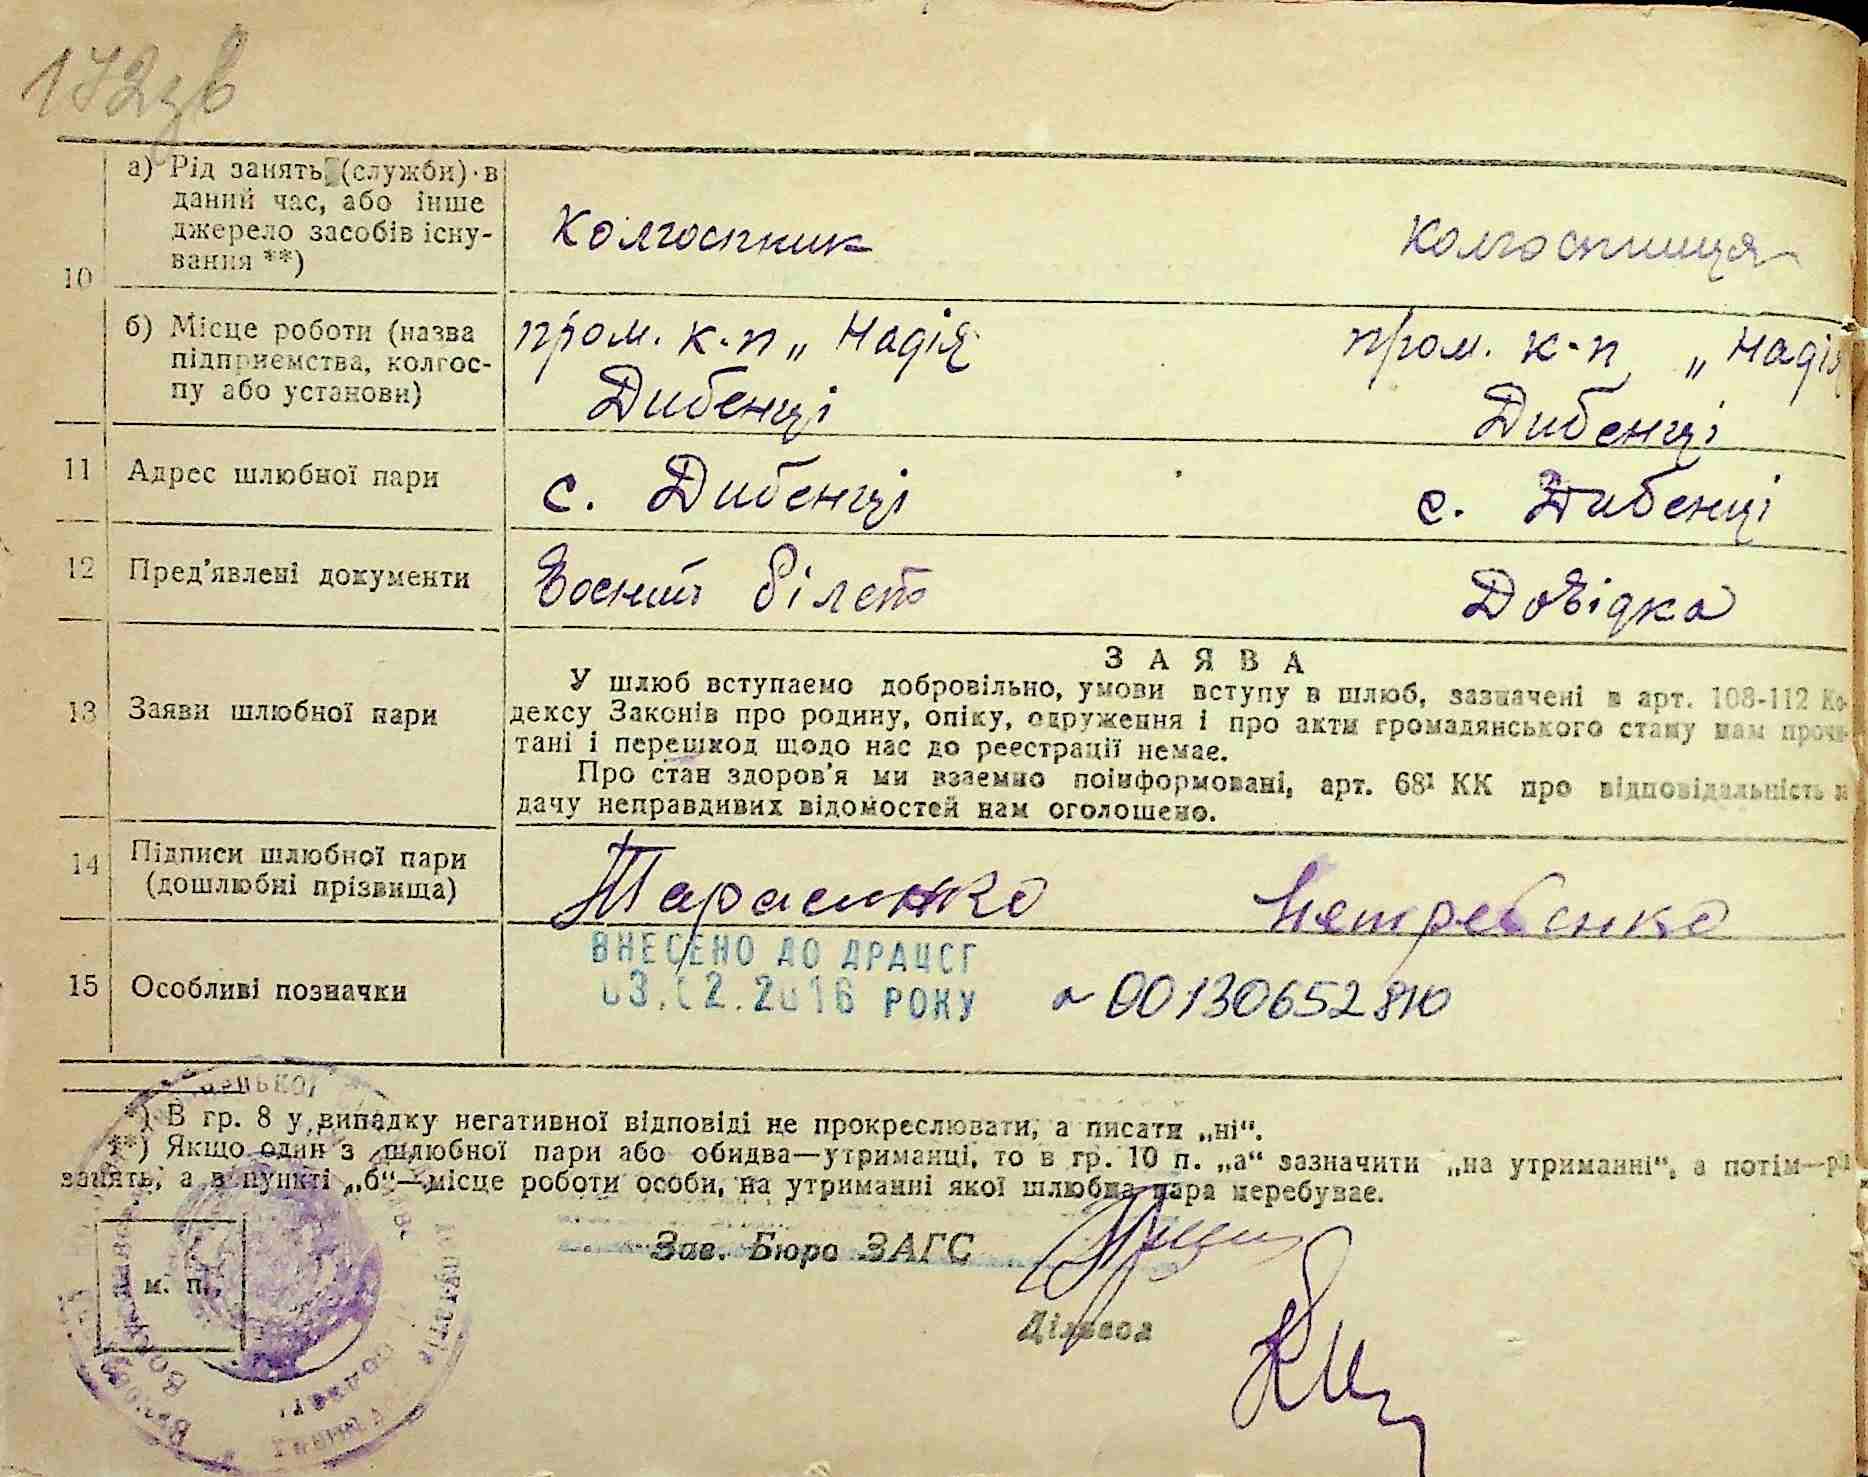 172зв
а) Рід занять (служби) в
даний час, або інше
джерело засобів існу-
вання **)
10
Колгоспник
колгоспниця
б) Місце роботи (назва
підприємства, колгос-
пу або установи)
пром. к-п „Надія
Дибенці
пром. к-п „Надія
Дибенці
11
Адрес шлюбної пари
с. Дибенці
с. Дибенці
12
Пред'явлені документи
Воєний білет
Довідка
13
Заяви шлюбної пари
ЗАЯВА
У шлюб вступаємо добровільно, умови вступу в шлюб, зазначені в арт. 108-112 Ко-
дексу Законів про родину, опіку, одруження і про акти громадянського стану нам прочи-
тані і перешкод щодо нас до реєстрації немає.
Про стан здоров'я ми взаємно поінформовані, арт. 68¹ КК про відповідальність
дачу неправдивих відомостей нам оголошено.
14
Підписи шлюбної пари
(дошлюбні прізвища)
Тарасенко
Нетребенко
15
Особливі позначки
ВНЕСЕНО ДО ДРАЦСГ
03.02.2016 РОКУ
00130652810
*) В гр. 8 у випадку негативної відповіді не прокреслювати, а писати „ні“.
**) Якщо один з шлюбної пари або обидва—утриманці, то в гр. 10 п. „а“ зазначити „на утриманні“, а потім—рід
занять, а в пункті „б“—місце роботи особи, на утриманні якої шлюбна пара перебуває.
Зав. Бюро ЗАГС
м. п.
Діловод